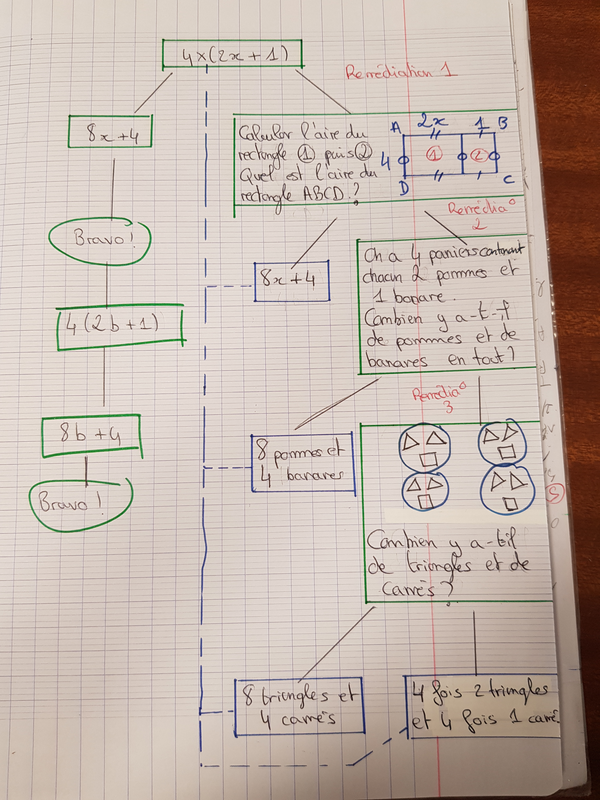 4×(2x+1)
Remédiation 1
8x+4
Calculer l'aire du
rectangle ① puis ②
Quel est l'aire du
rectangle ABCD ?
A 2x 1 B
4 ① ②
D C
Remédia°
2
Bravo !
8x+4
On a 4 paniers contenant
chacun 2 pommes et
1 banane.
Combien y a-t-il
de pommes et de
bananes en tout ?
4(2b+1)
Remédia°
3
8b+4
8 pommes et
4 bananes
Bravo !
Combien y a-t-il
de triangles et de
carrés ?
8 triangles et
4 carrés
4 fois 2 triangles
et 4 fois 1 carré